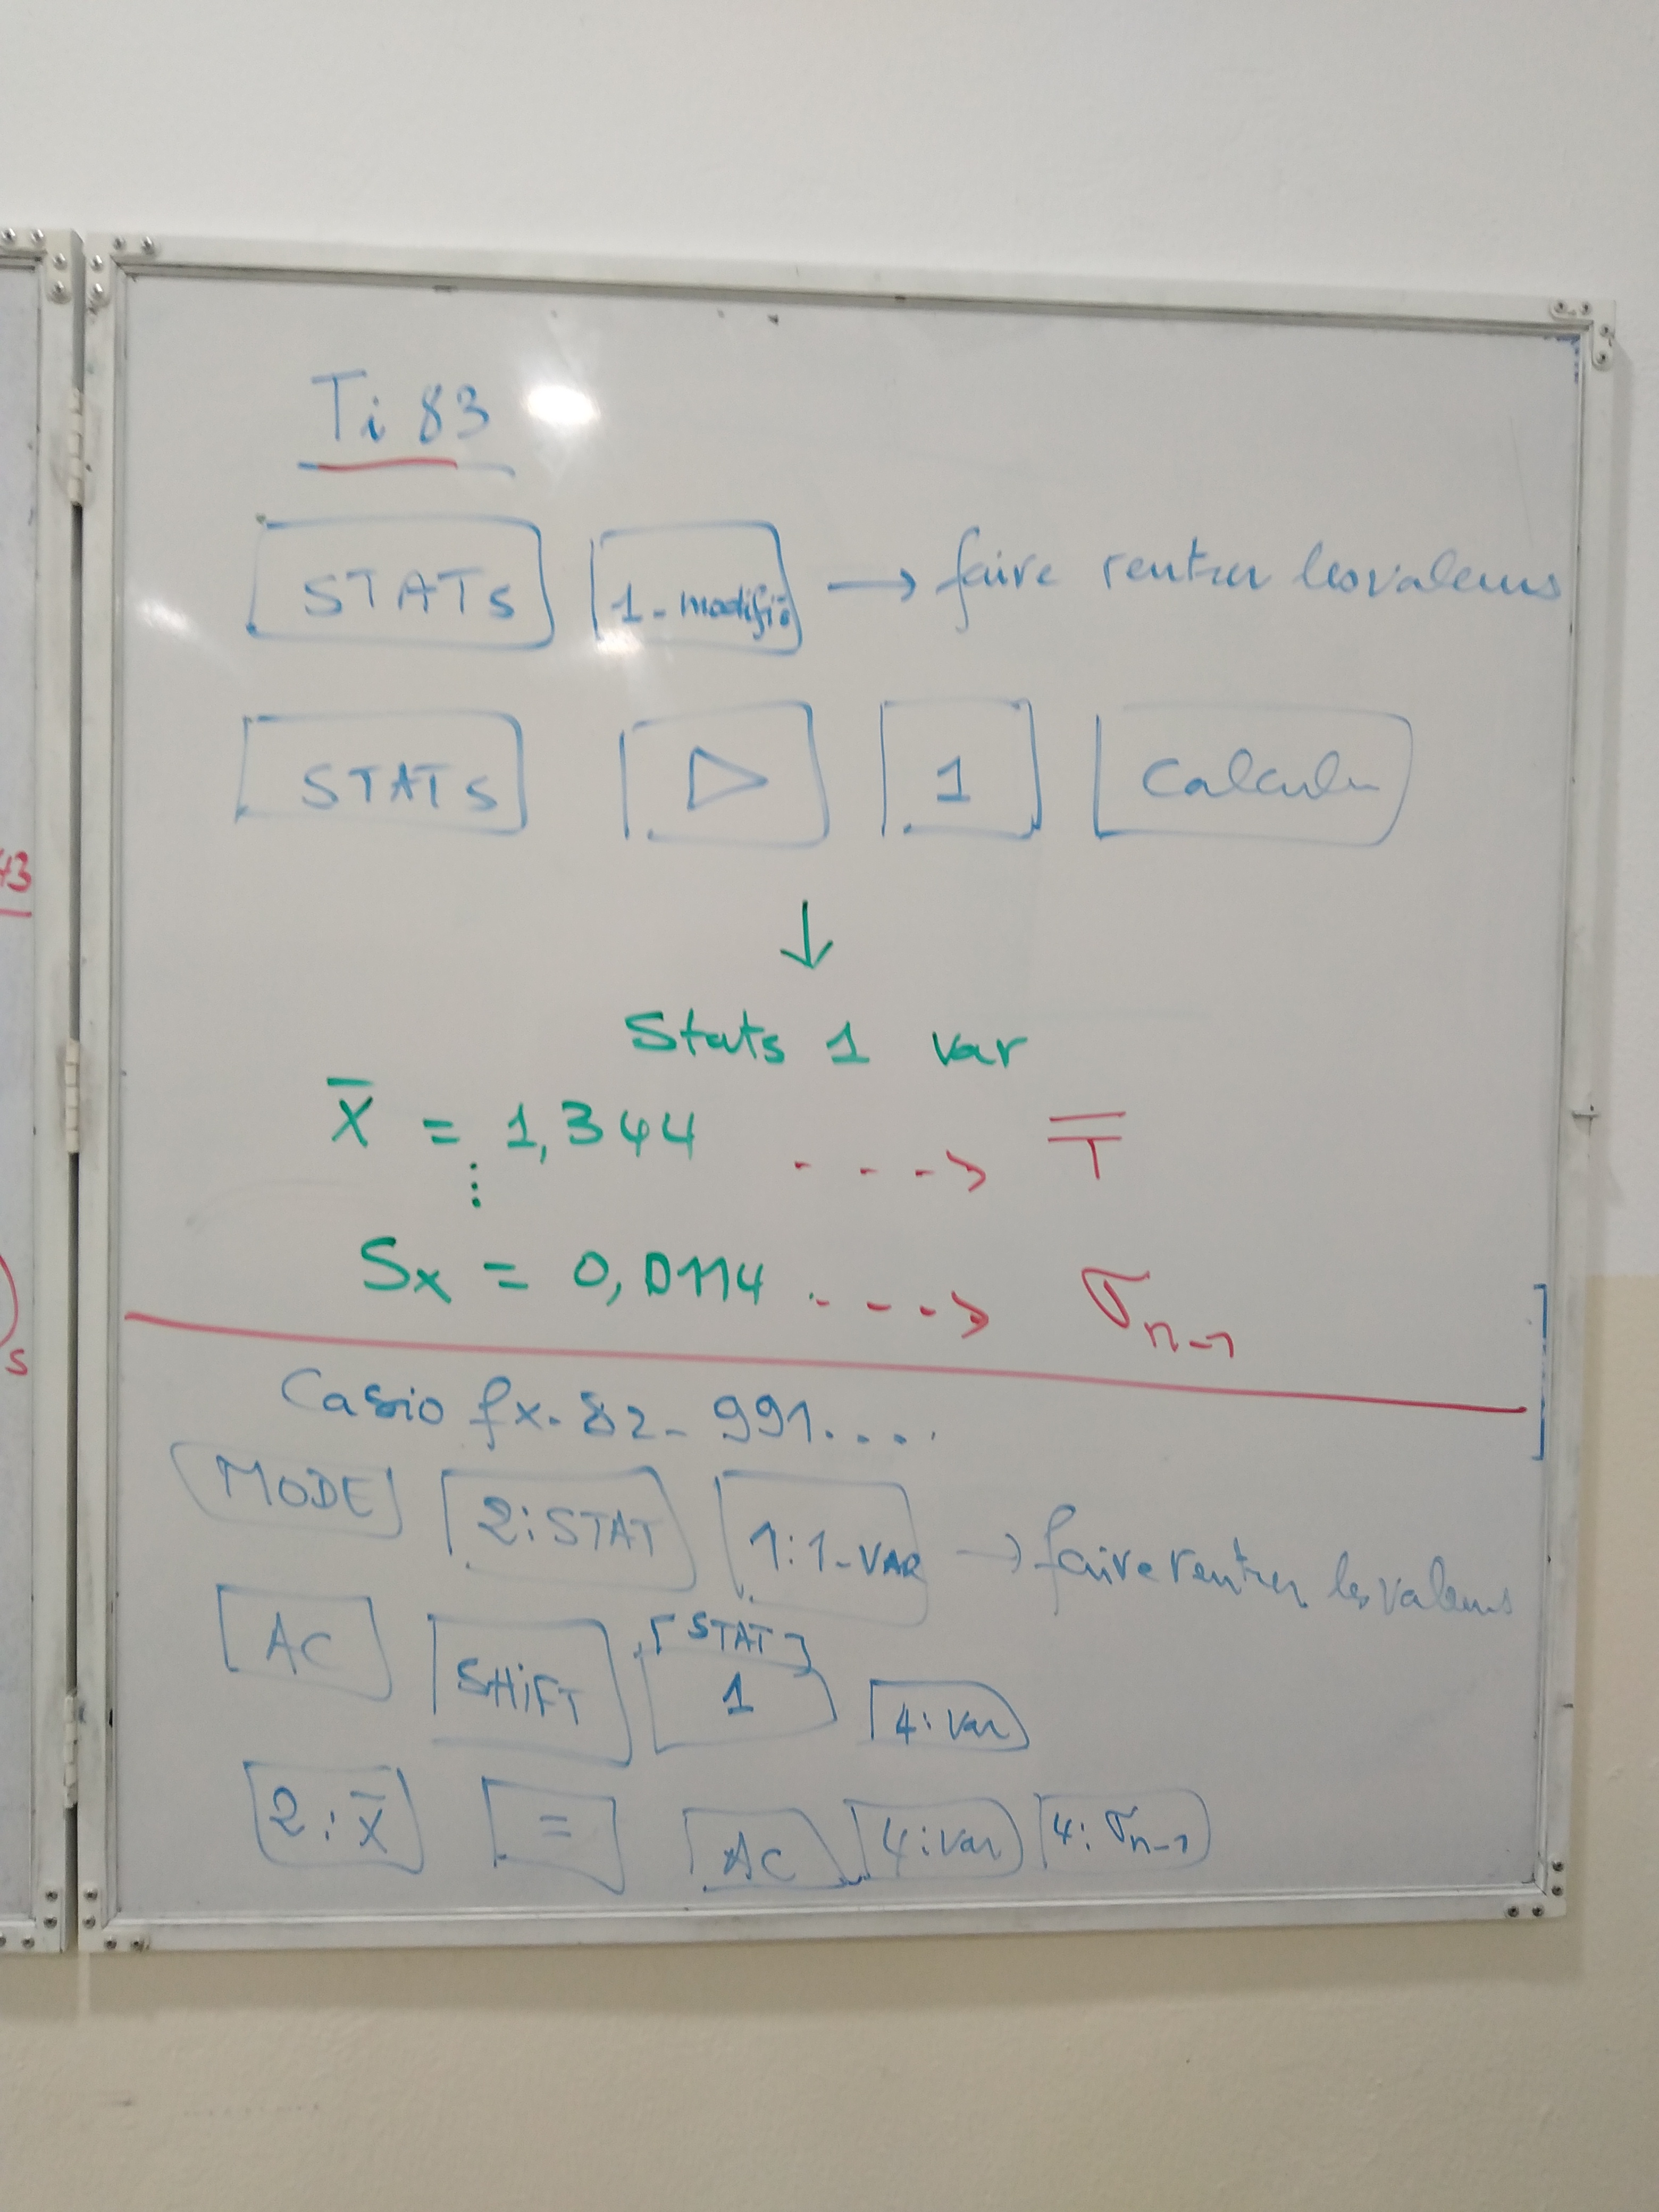 Ti 83
STATS 1-modifié → faire rentrer les valeurs
STATS ▷ 1 Calculer
↓
Stats 1 var
X̄ = 1,344 ---> T̿
⋮
Sx = 0,0114 ---> σn-1
Casio fx-82-991....
MODE 2:STAT 1:1-VAR → faire rentrer les valeurs
[STAT]
AC SHiFT 1 4:Var
2:X̄ = AC 4:Var 4:σn-1
43
s